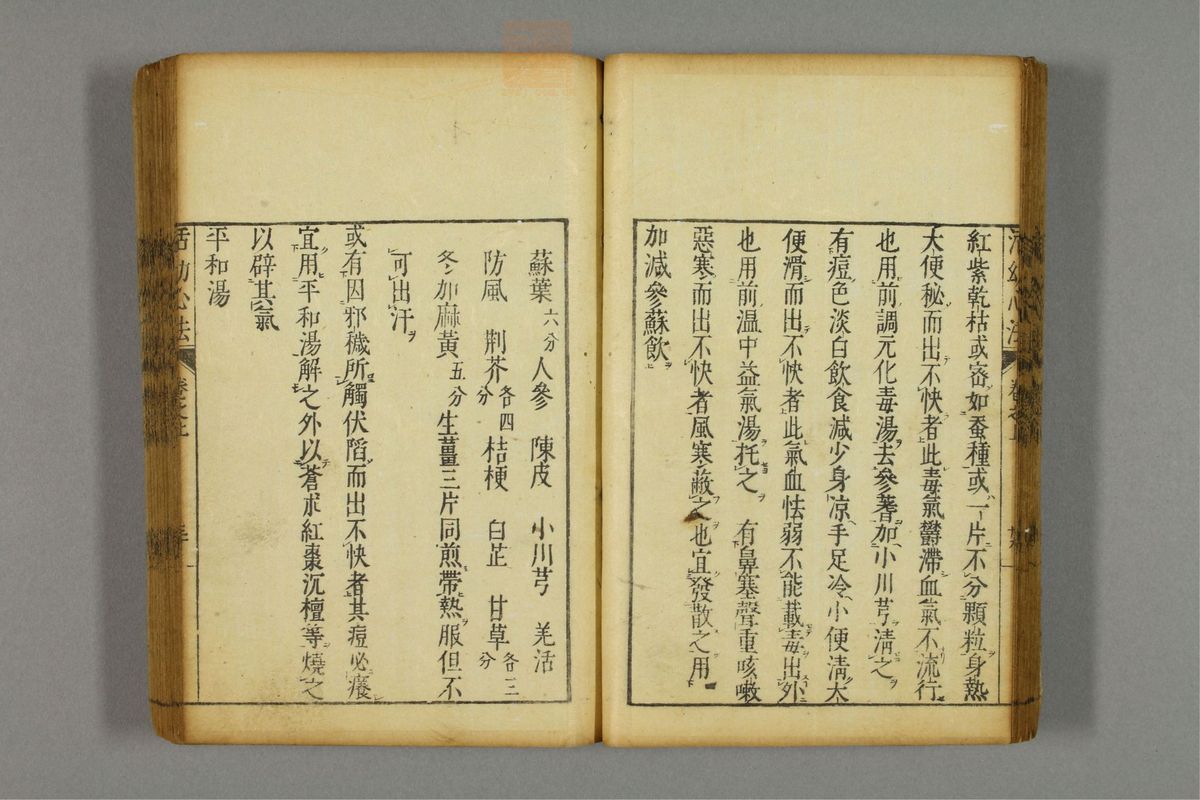 紅紫乾枯或密如蚕種或一片不分顆粒身熱
大便秘而出不快者此毒氣欝滯血氣不流行
也用前調元化毒湯去參蓍加小川芎清之
有痘色淡白飲食減少身凉手足冷小便清大
便滑而出不快者此氣血怯弱不能載毒出外
也用前温中益氣湯托之 有鼻塞聲重咳嗽
惡寒而出不快者風寒蔽之也宜發散之用
加減參蘇飲
蘇葉六分 人參 陳皮 小川芎 羌活
防風 荆芥各四分 桔梗 白芷 甘草各三分
冬加麻黄五分 生薑三片同煎帶熱服但不
可出汗
或有因邪穢所觸伏陷而出不快者其痘必癢
宜用平和湯解之外以蒼朮紅棗沉檀等燒之
以辟其氣
平和湯
活幼心法 卷之上